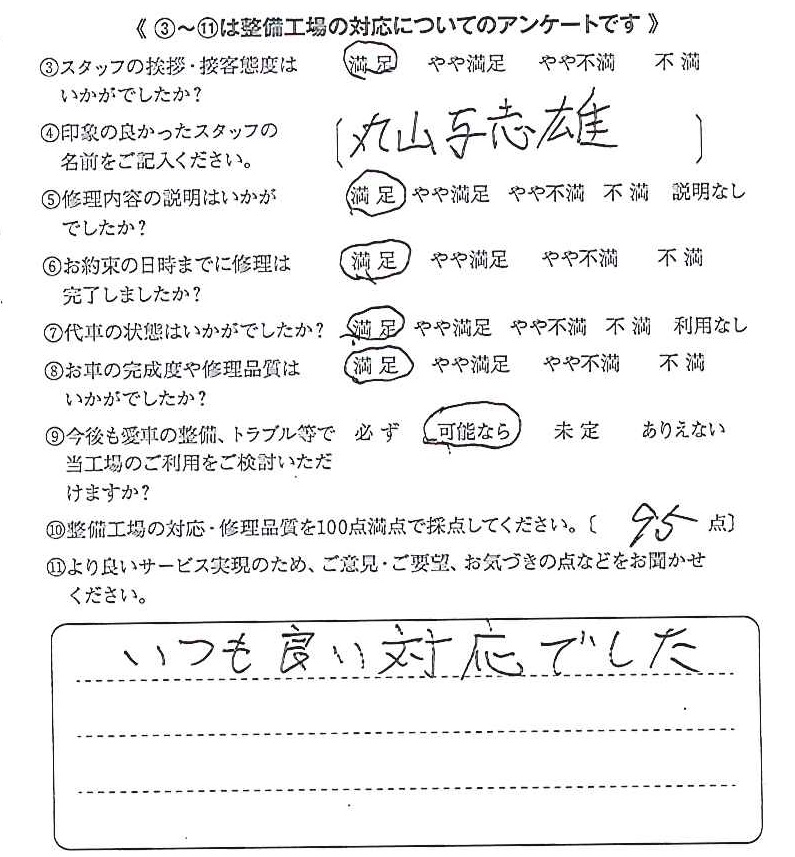 《 ③～⑪は整備工場の対応についてのアンケートです 》
③スタッフの挨拶・接客態度は 満足 やや満足 やや不満 不満
いかがでしたか？
④印象の良かったスタッフの 〔丸山与志雄〕
名前をご記入ください。
⑤修理内容の説明はいかが 満足 やや満足 やや不満 不満 説明なし
でしたか？
⑥お約束の日時までに修理は 満足 やや満足 やや不満 不満
完了しましたか？
⑦代車の状態はいかがでしたか？ 満足 やや満足 やや不満 不満 利用なし
⑧お車の完成度や修理品質は 満足 やや満足 やや不満 不満
いかがでしたか？
⑨今後も愛車の整備、トラブル等で 必ず 可能なら 未定 ありえない
当工場のご利用をご検討いただ
けますか？
⑩整備工場の対応・修理品質を100点満点で採点してください。〔 95 点〕
⑪より良いサービス実現のため、ご意見・ご要望、お気づきの点などをお聞かせ
ください。
いつも良い対応でした